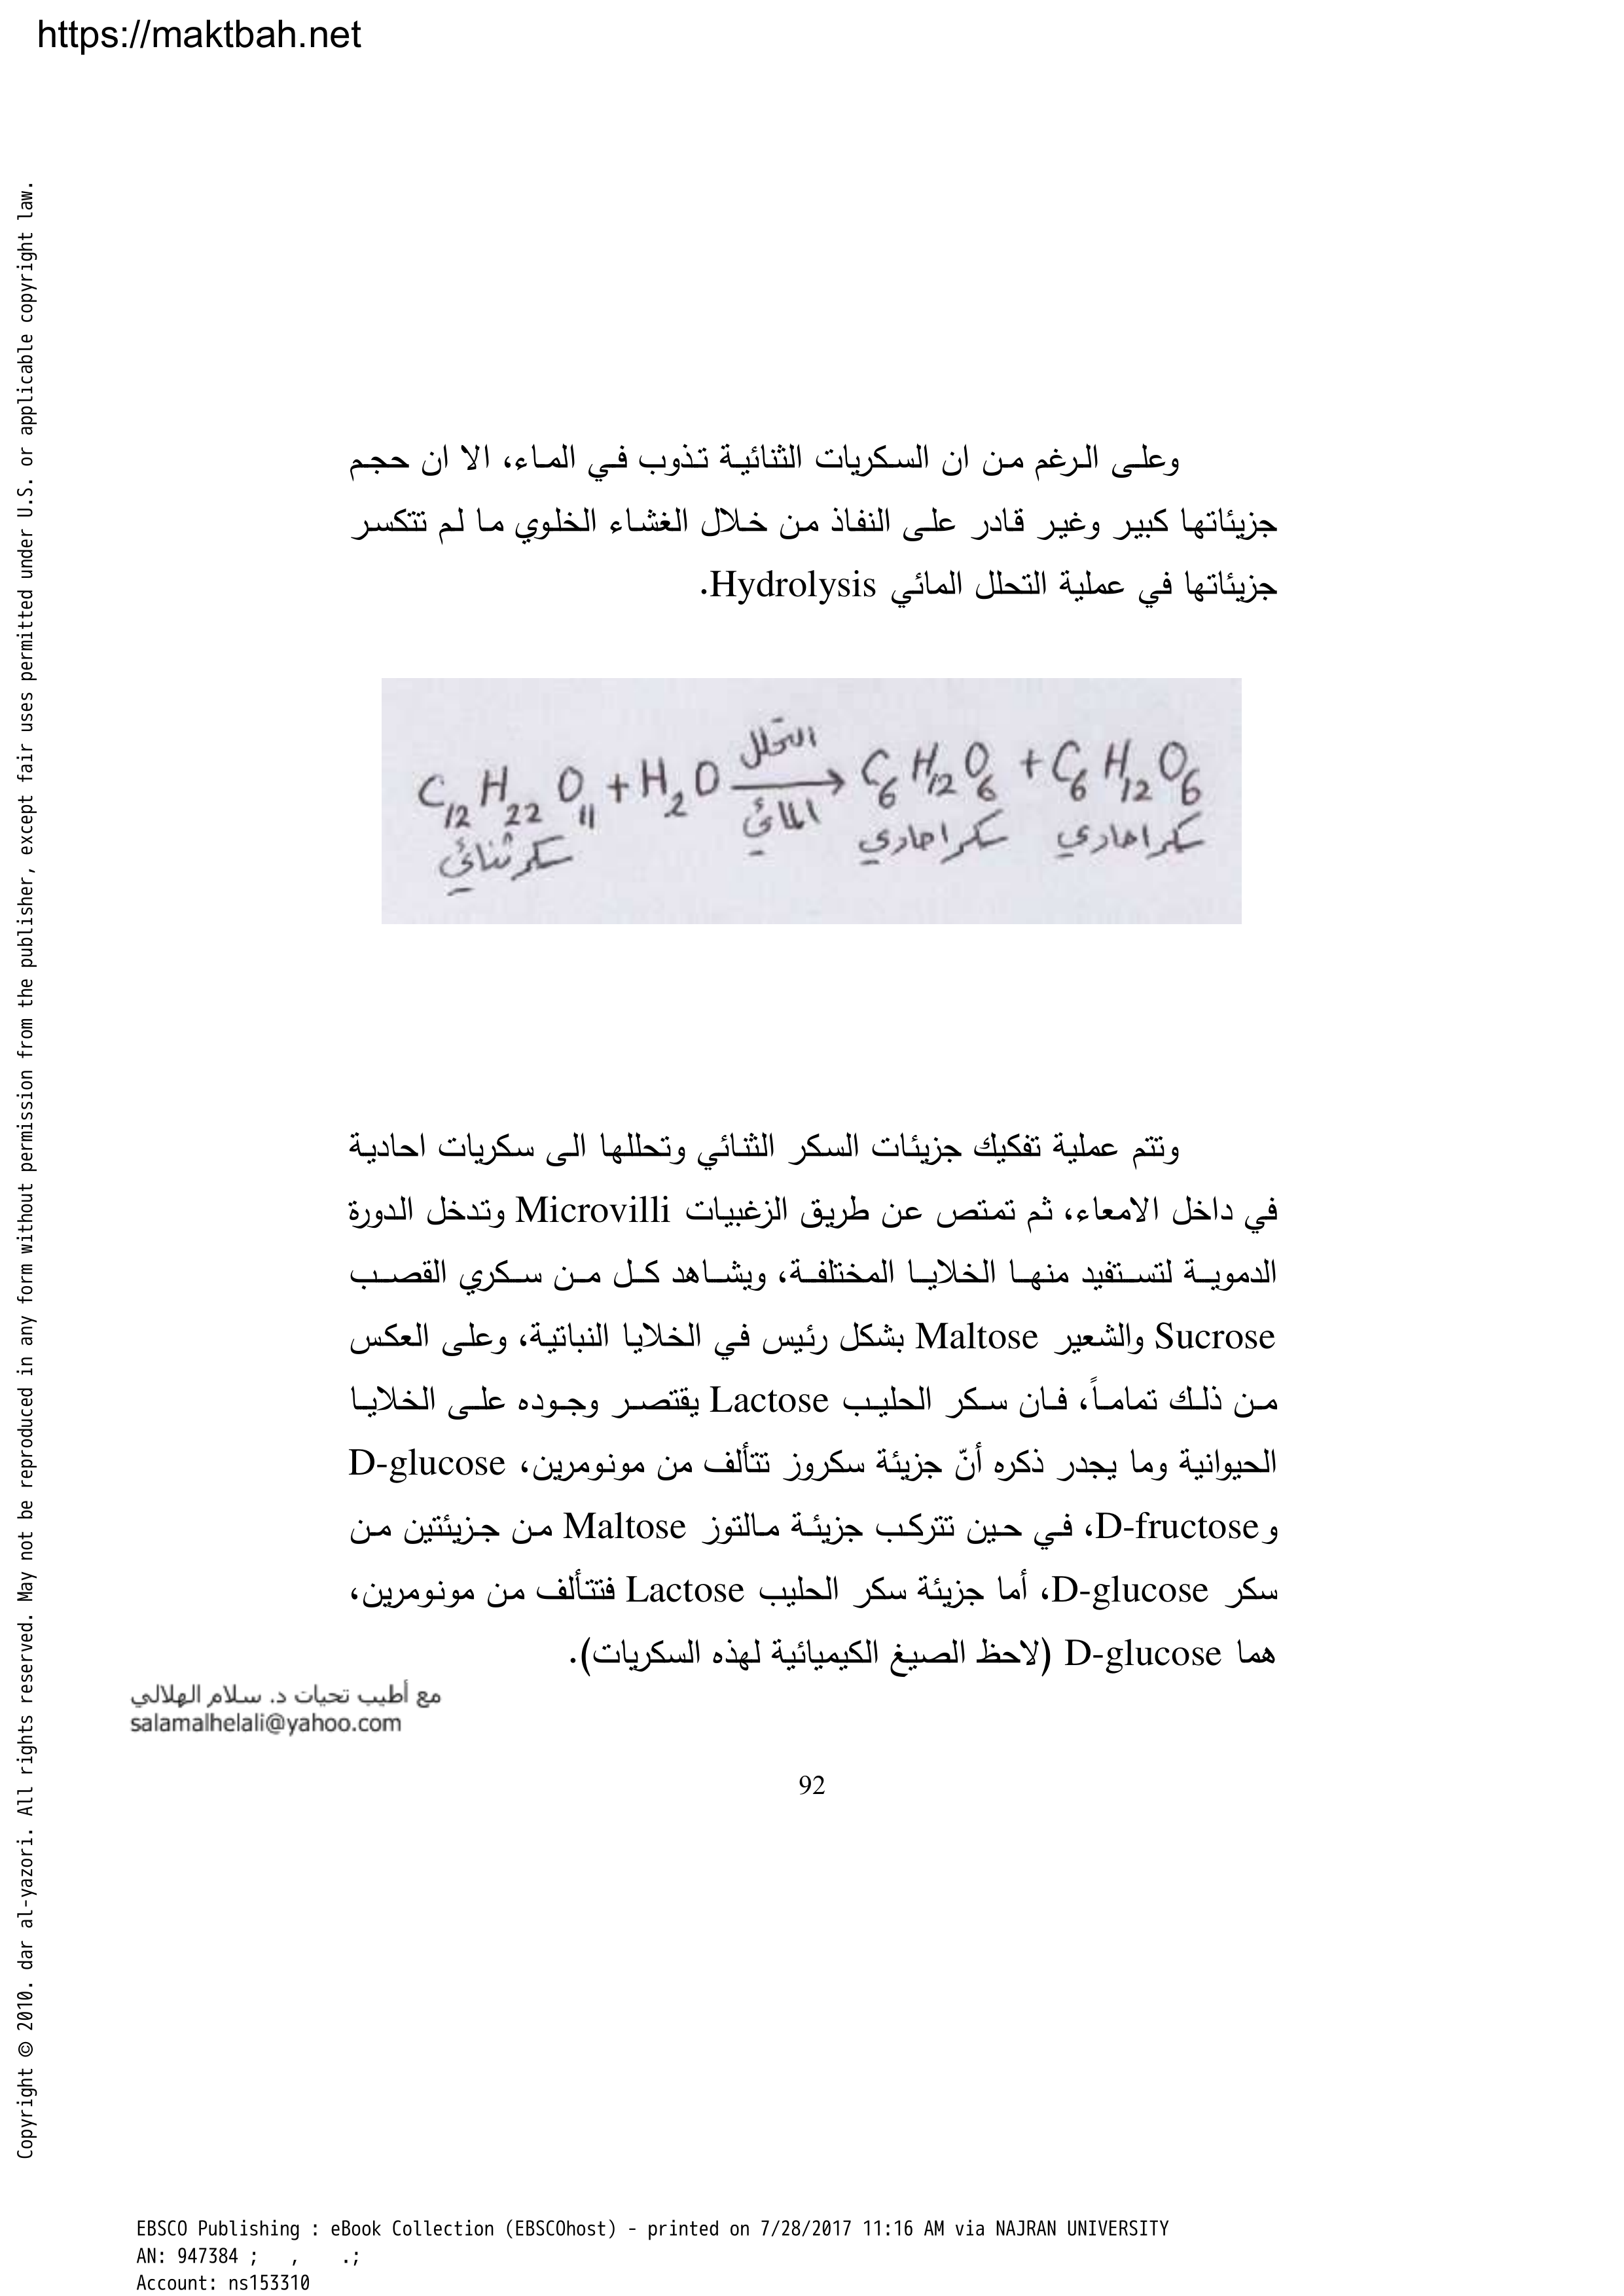 https://maktbah.net
Copyright © 2010. dar al-yazori. All rights reserved. May not be reproduced in any form without permission from the publisher, except fair uses permitted under U.S. or applicable copyright law.
وعلى الرغم من ان السكريات الثنائية تذوب في الماء، الا ان حجم
جزيئاتها كبير وغير قادر على النفاذ من خلال الغشاء الخلوي ما لم تتكسر
جزيئاتها في عملية التحلل المائي Hydrolysis.
التحلل
C₁₂H₂₂O₁₁ + H₂O → C₆H₁₂O₆ + C₆H₁₂O₆
المائي
سكر ثنائي سكر احادي سكر احادي
وتتم عملية تفكيك جزيئات السكر الثنائي وتحللها الى سكريات احادية
في داخل الامعاء، ثم تمتص عن طريق الزغبيات Microvilli وتدخل الدورة
الدموية لتستفيد منها الخلايا المختلفة، ويشاهد كل من سكري القصب
Sucrose والشعير Maltose بشكل رئيس في الخلايا النباتية، وعلى العكس
من ذلك تماماً، فان سكر الحليب Lactose يقتصر وجوده على الخلايا
الحيوانية وما يجدر ذكره أنّ جزيئة سكروز تتألف من مونومرين، D-glucose
وD-fructose، في حين تتركب جزيئة مالتوز Maltose من جزيئتين من
سكر D-glucose، أما جزيئة سكر الحليب Lactose فتتألف من مونومرين،
هما D-glucose (لاحظ الصيغ الكيميائية لهذه السكريات).
مع أطيب تحيات د. سلام الهلالي
salamalhelali@yahoo.com
92
EBSCO Publishing : eBook Collection (EBSCOhost) - printed on 7/28/2017 11:16 AM via NAJRAN UNIVERSITY
AN: 947384 ; , .;
Account: ns153310